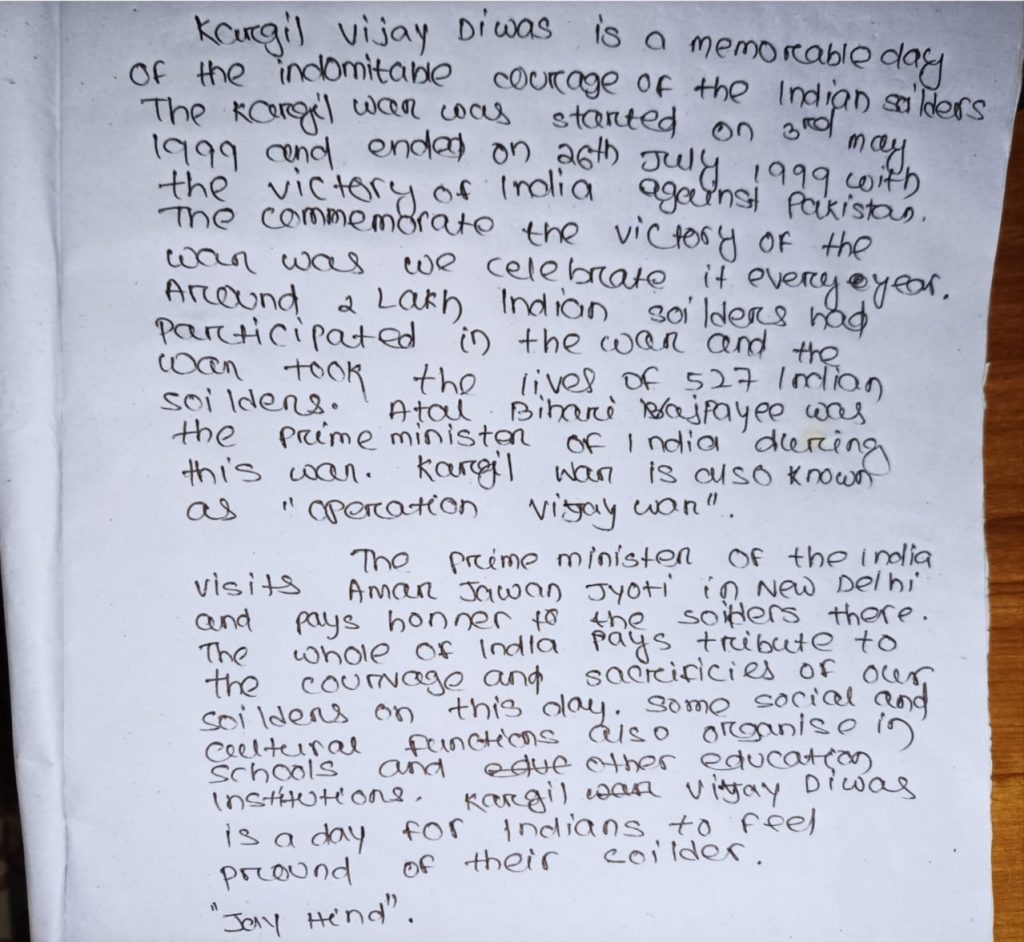 Kargil vijay Diwas is a memorable day
of the indomitable courage of the Indian soilders
The Kargil war was started on 3rd may
1999 and ended on 26th July 1999 with
the victory of India against Pakistan.
The commemorate the victory of the
war was we celebrate it every year.
Around 2 Lakh Indian soilders had
participated in the war and the
war took the lives of 527 Indian
soilders. Atal Bihari Vajpayee was
the prime minister of India during
this war. Kargil war is also known
as "operation vijay war".
The prime minister of the india
visits Amar Jawan Jyoti in New Delhi
and pays honner to the soilders there.
The whole of India pays tribute to
the courvage and sacrificies of our
soilders on this day. some social and
cultural functions also organise in
schools and other education
institutions. Kargil Vijay Diwas
is a day for Indians to feel
pround of their coilder.
"Jay Hind".